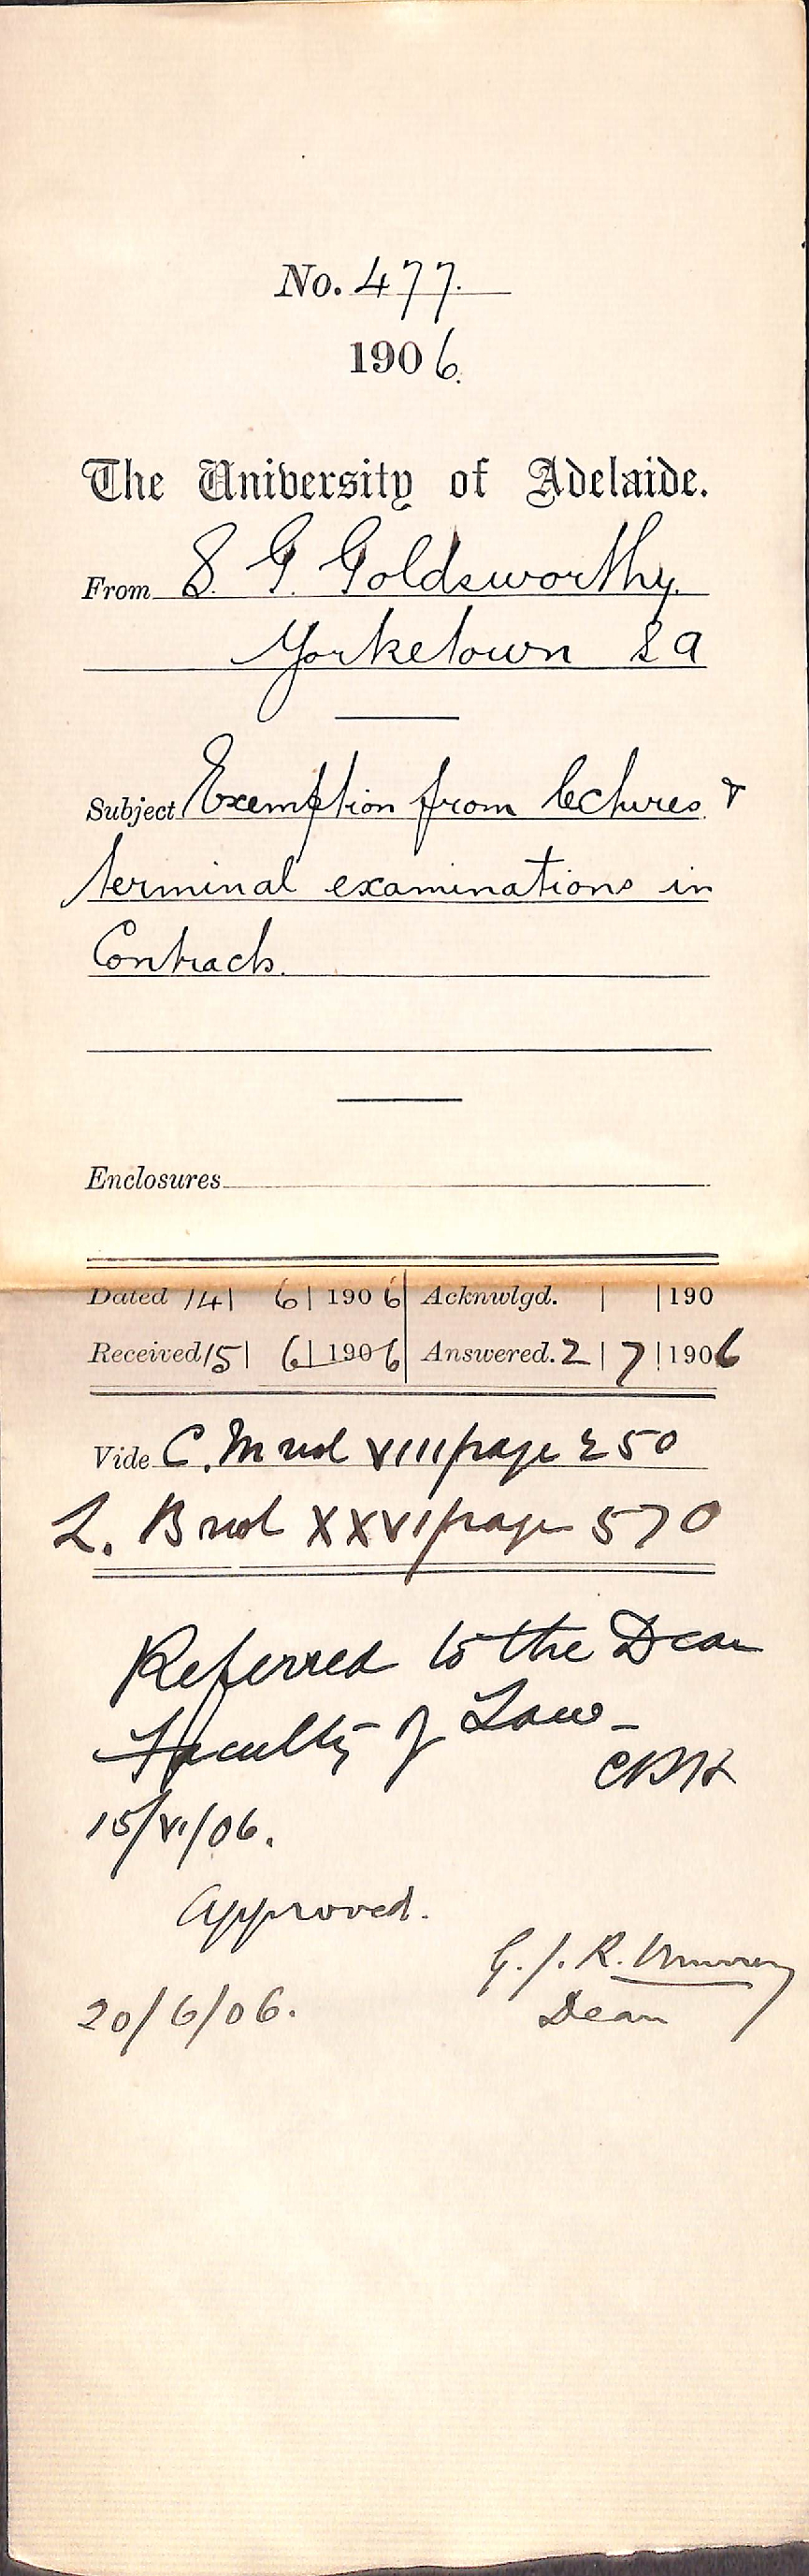 No. 477.
1906.
The University of Adelaide.
From S. G. Goldsworthy.
Yorketown S A
Subject Exemption from lectures &
terminal examinations in
Contracts.
Enclosures
Dated 14| 6| 1906 | Acknwlgd. | |190
Received 15| 6| 1906 | Answered. 2| 7|1906
Vide C. M vol VIII page 250
L. B vol XXVI page 570
Referred to the Dean
Faculty of Law_
15/VI/06.
Approved.
G. J. R. Murray
20/6/06. Dean